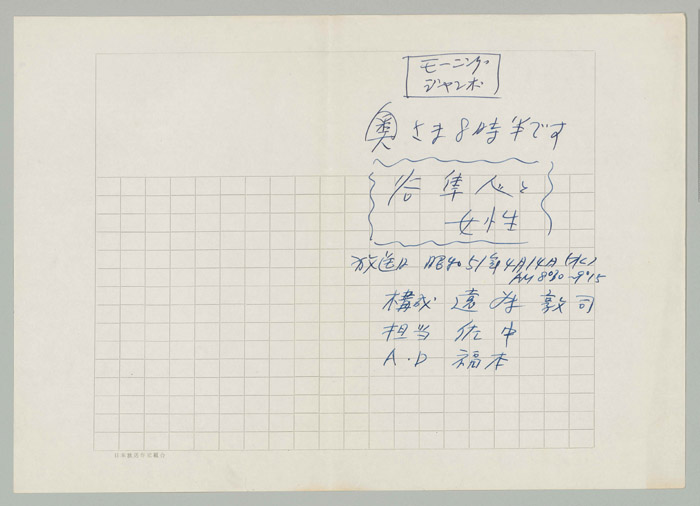 モーニング・
ジャンボ
奥さま8時半です
谷隼人と
女性
放送日 昭和51年4月14日(水)
AM 8:30~9:15
構成 遠藤敦司
担当 佐中
A・D 福本
日本放送作家組合